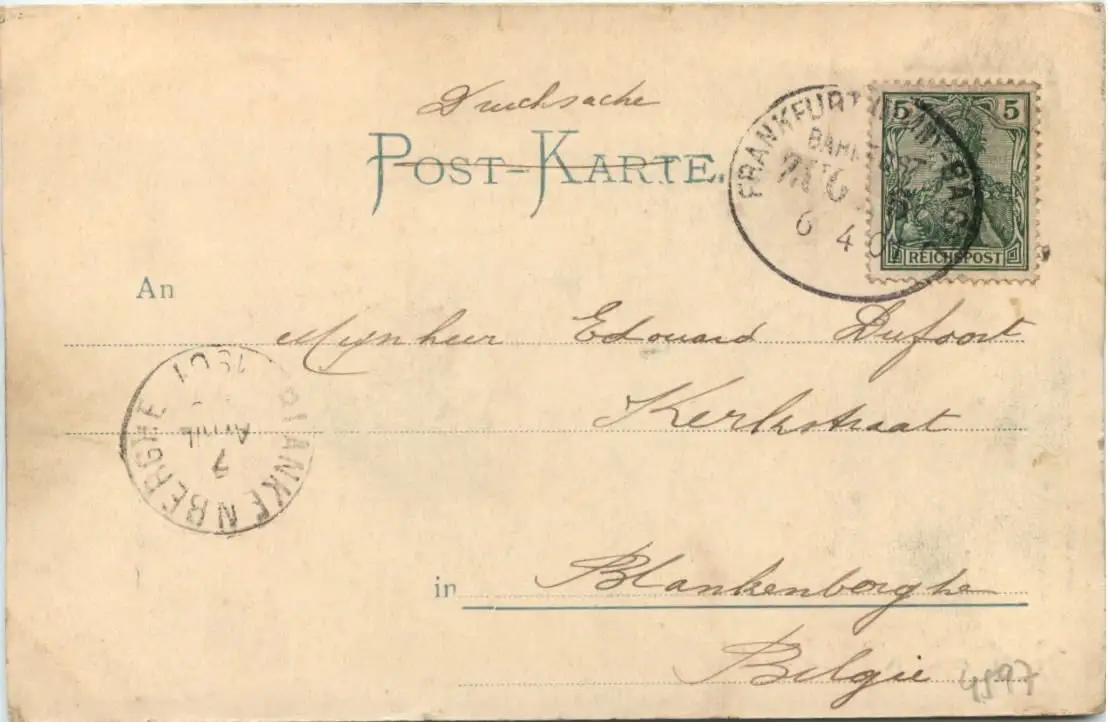 Drucksache
POST-KARTE.
5 5
REICHSPOST
FRANKFURT
BAHNPOST
ZUG
6 4 01
An
Mynheer Edouard Dufoort
Kerkstraat
BLANKENBERGHE
7
AVRIL
1901
in Blankenberghe
Belgie
4597